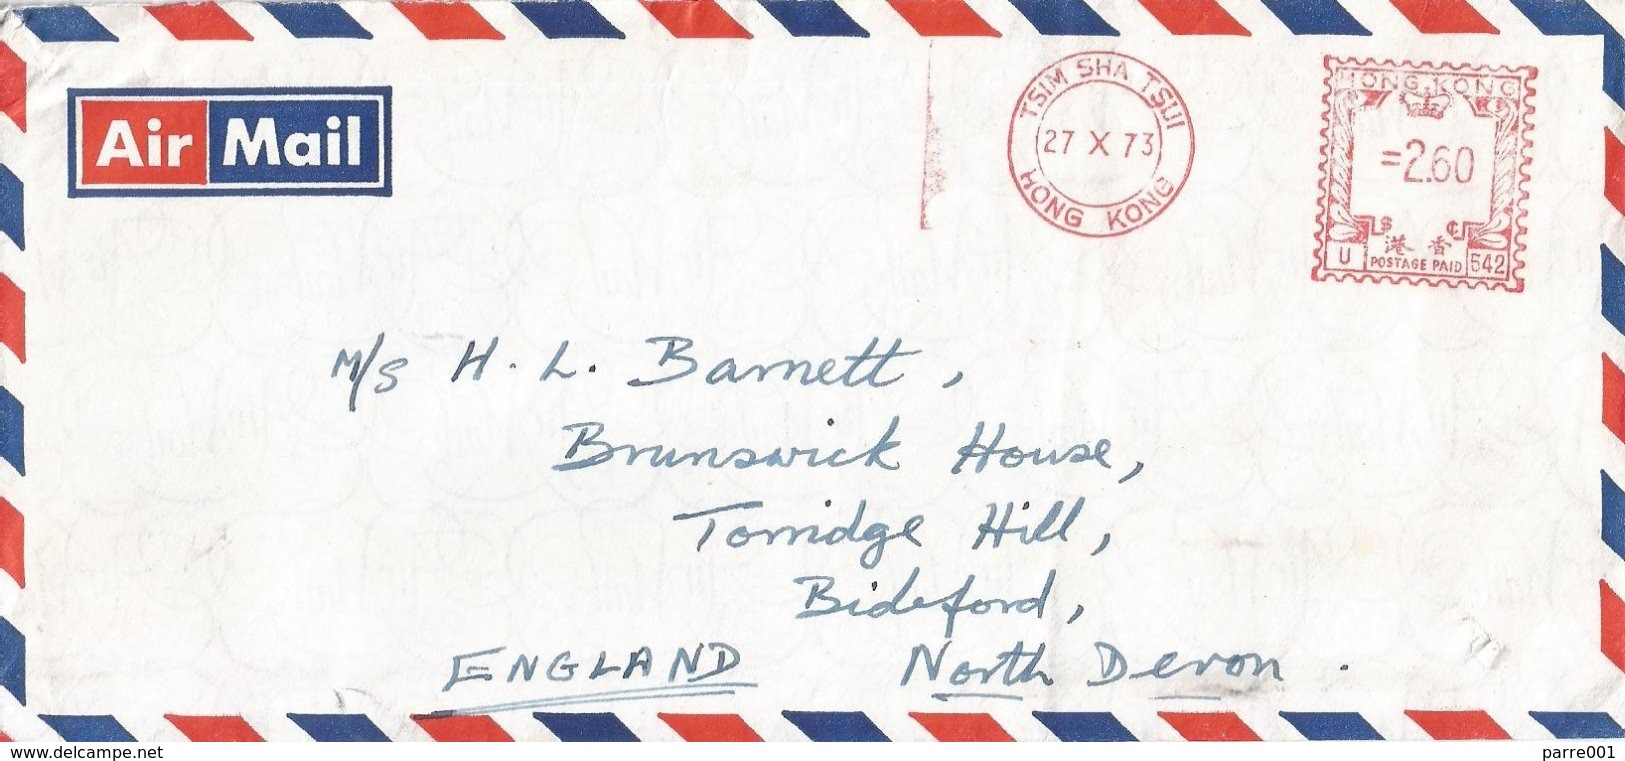 Air Mail
TSIM SHA TSUI
27 X 73
HONG KONG
HONG KONG
=2.60
$ ¢
港 香
U POSTAGE PAID 542
M/S H. L. Barnett,
Brunswick House,
Torridge Hill,
Bideford,
ENGLAND North Devon.
www.delcampe.net
parre001